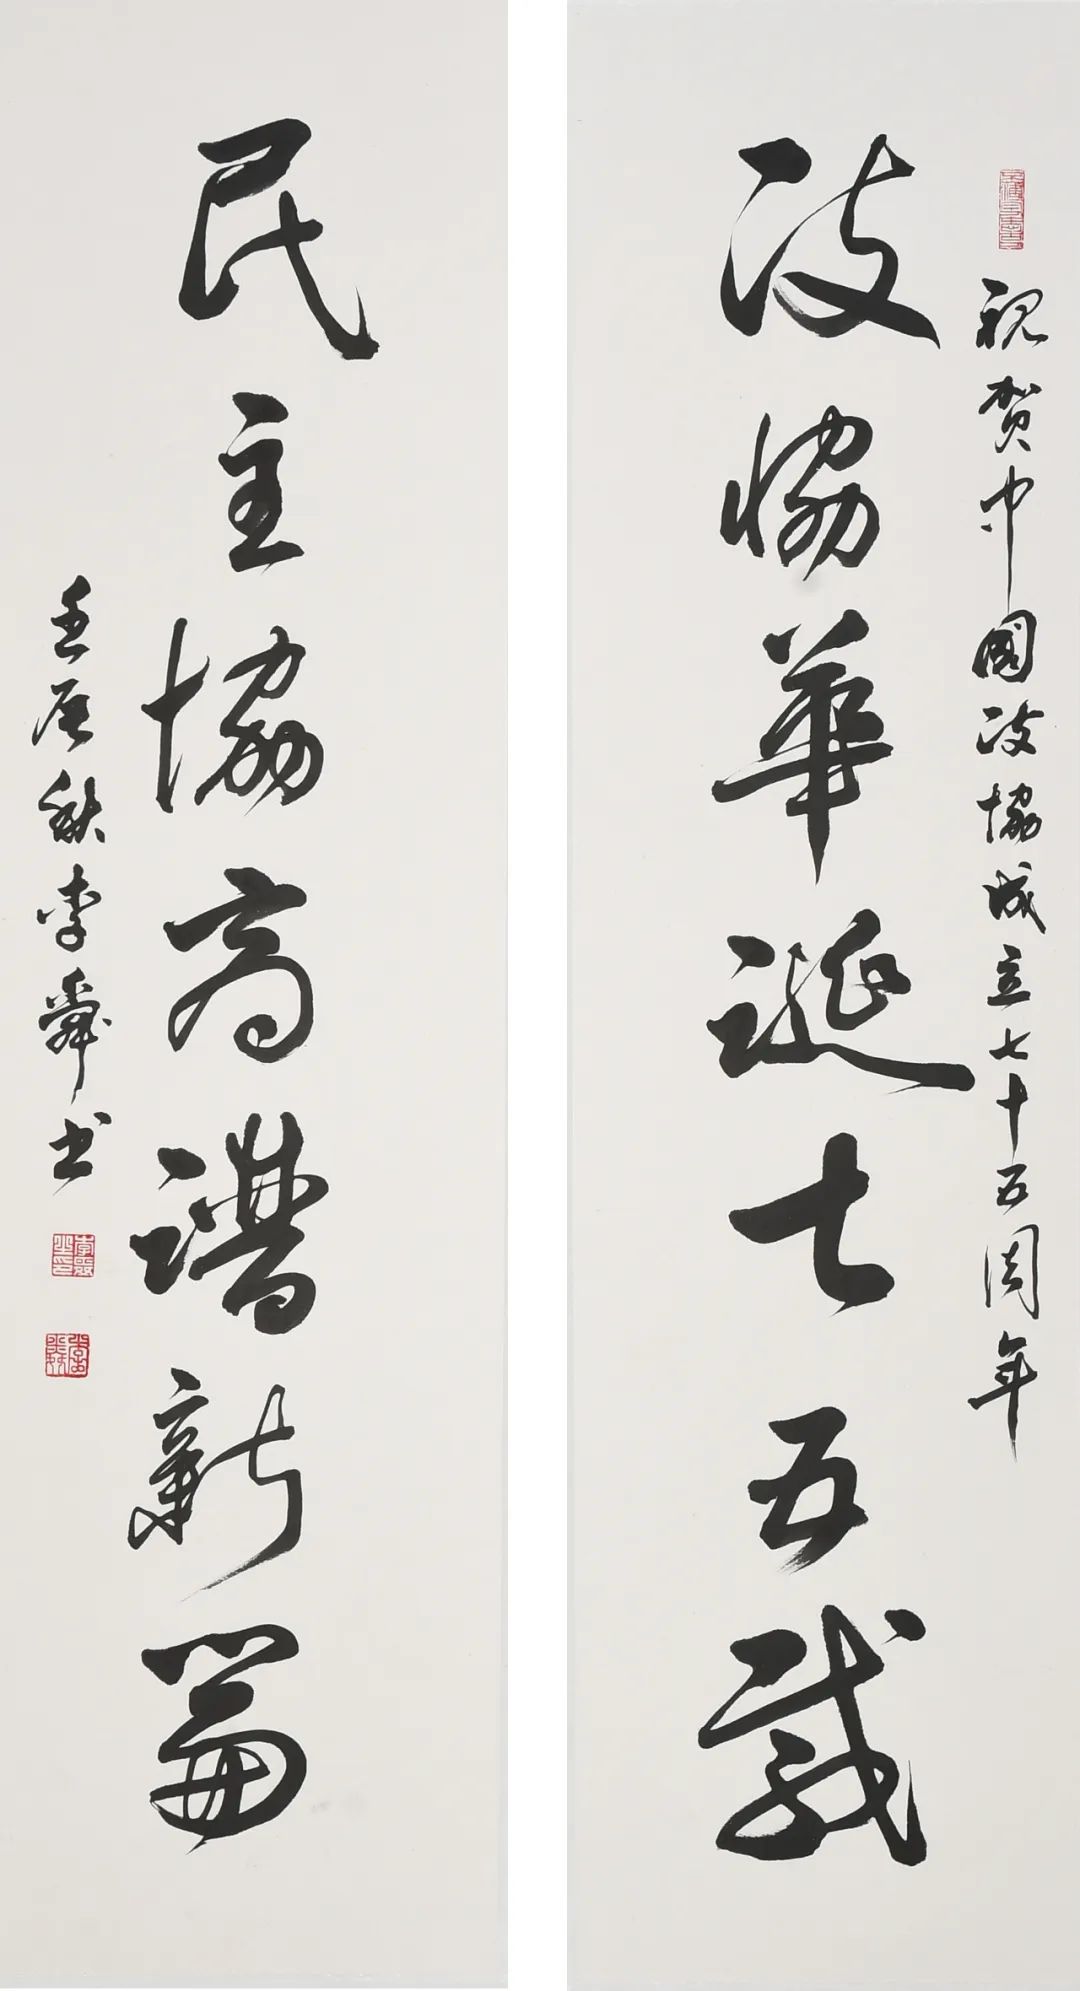 祝贺中國政協成立七十五周年
政協華誕七五載
民主協商譜新篇
壬辰秋李舜书